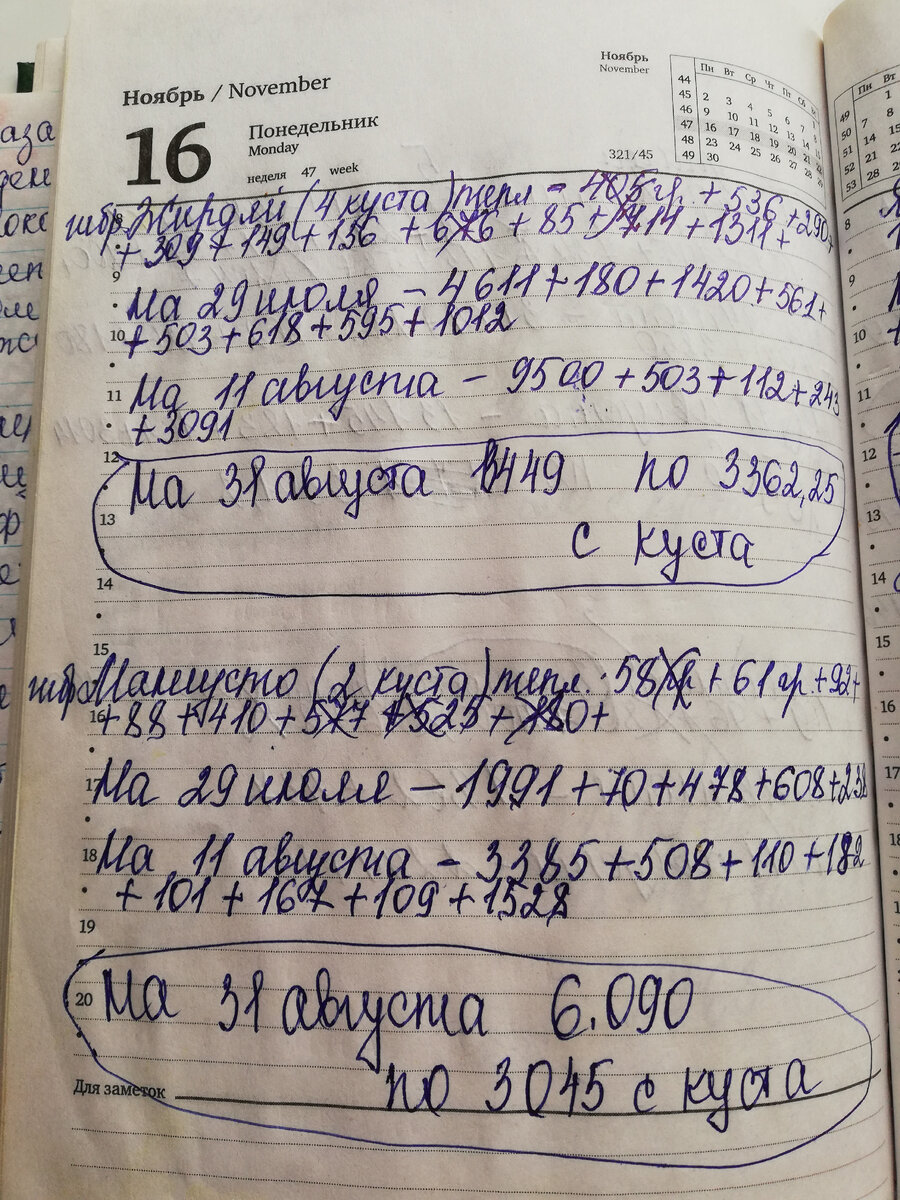 Ноябрь / November
16
Понедельник
Monday
неделя 47 week
Ноябрь
November
321/45
Пн Вт Ср Чт Пт Сб Вс
44
45 2 3 4 5 6 7 8
46 9 10 11 12 13 14 15
47 16 17 18 19 20 21 22
48 23 24 25 26 27 28 29
49 30
гибр. Жирдяй (4 куста) тепл - 405 гр. + 536 + 290 +
+ 309 + 149 + 136 + 676 + 85 + 714 + 1311 +
На 29 июля - 4611 + 180 + 1420 + 561 +
+ 503 + 618 + 595 + 1012
На 11 августа - 9500 + 503 + 112 + 243
+ 3091
На 31 августа 13449 по 3362,25
с куста
(2 куста) тепл. 58 гр + 61 гр. + 92 +
+ 88 + 1410 + 577 + 525 + 180 +
На 29 июля - 1991 + 70 + 478 + 608 + 238
На 11 августа - 3385 + 508 + 110 + 182
+ 101 + 167 + 109 + 1528
На 31 августа 6.090
по 3045 с куста
8
9
10
11
12
13
14
15
16
17
18
19
20
Для заметок